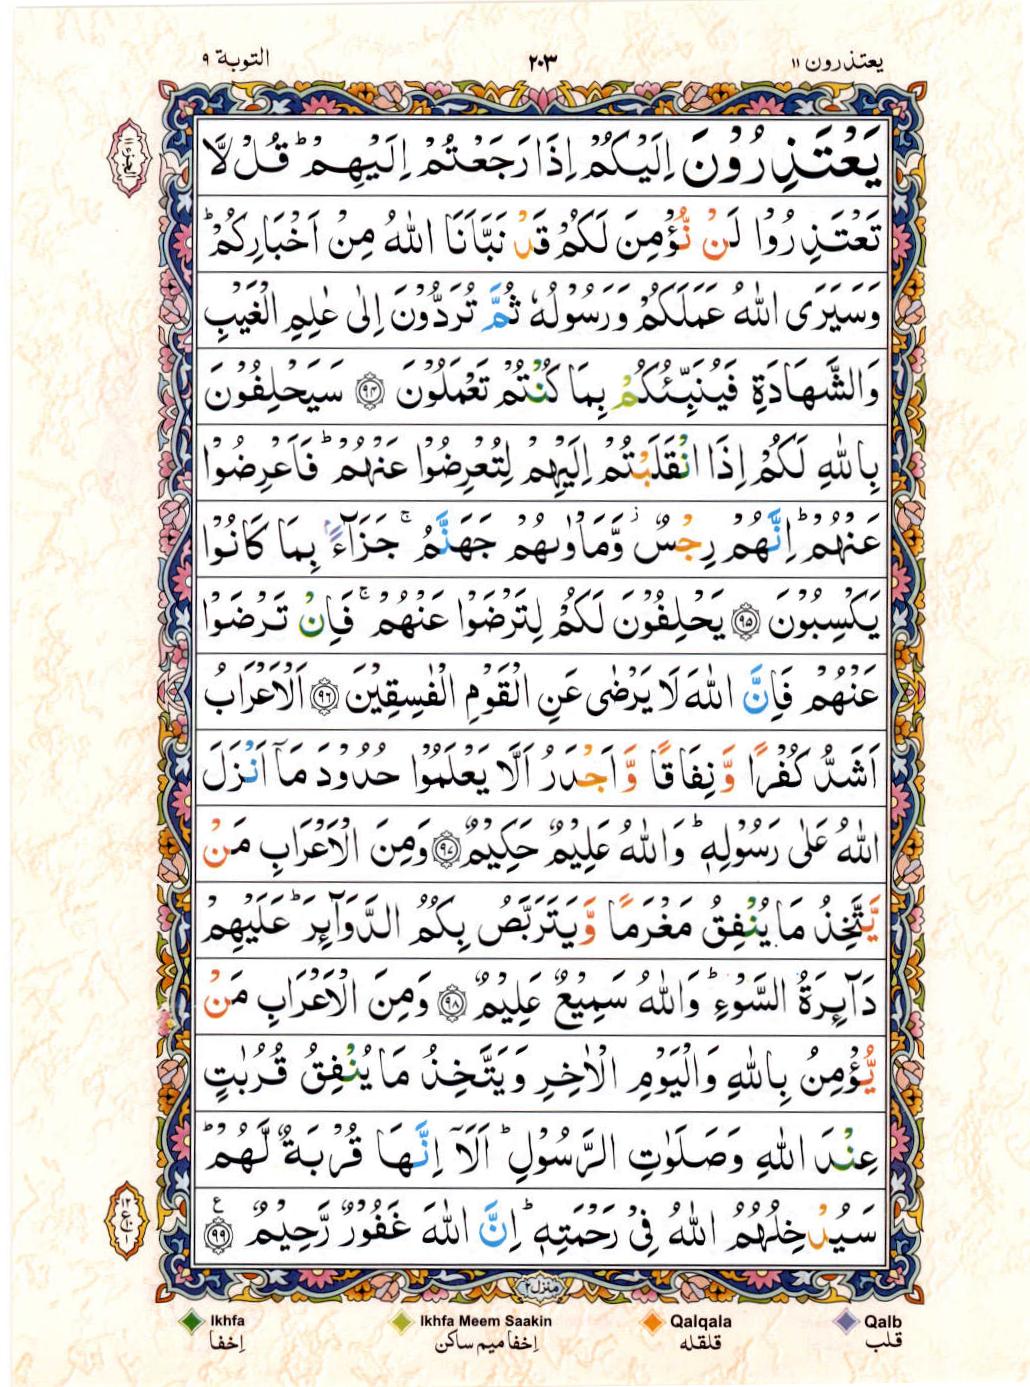 يعتذرون ١١ ٢٠٣ التوبة ٩
يَعْتَذِرُوْنَ اِلَيْكُمْ اِذَا رَجَعْتُمْ اِلَيْهِمْ ؕ قُلْ لَّا
تَعْتَذِرُوْا لَنْ نُّؤْمِنَ لَكُمْ قَدْ نَبَّاَنَا اللّٰهُ مِنْ اَخْبَارِكُمْ ؕ
وَسَيَرَى اللّٰهُ عَمَلَكُمْ وَرَسُوْلُهٗ ثُمَّ تُرَدُّوْنَ اِلٰى عٰلِمِ الْغَيْبِ
وَالشَّهَادَةِ فَيُنَبِّئُكُمْ بِمَا كُنْتُمْ تَعْمَلُوْنَ ۝۹۴ سَيَحْلِفُوْنَ
بِاللّٰهِ لَكُمْ اِذَا انْقَلَبْتُمْ اِلَيْهِمْ لِتُعْرِضُوْا عَنْهُمْ ؕ فَاَعْرِضُوْا
عَنْهُمْ ؕ اِنَّهُمْ رِجْسٌ ؗ وَّمَاْوٰىهُمْ جَهَنَّمُ ۚ جَزَآءًۢ بِمَا كَانُوْا
يَكْسِبُوْنَ ۝۹۵ يَحْلِفُوْنَ لَكُمْ لِتَرْضَوْا عَنْهُمْ ۚ فَاِنْ تَرْضَوْا
عَنْهُمْ فَاِنَّ اللّٰهَ لَا يَرْضٰى عَنِ الْقَوْمِ الْفٰسِقِيْنَ ۝۹۶ اَلْاَعْرَابُ
اَشَدُّ كُفْرًا وَّنِفَاقًا وَّاَجْدَرُ اَلَّا يَعْلَمُوْا حُدُوْدَ مَاۤ اَنْزَلَ
اللّٰهُ عَلٰى رَسُوْلِهٖ ؕ وَاللّٰهُ عَلِيْمٌ حَكِيْمٌ ۝۹۷ وَمِنَ الْاَعْرَابِ مَنْ
يَّتَّخِذُ مَا يُنْفِقُ مَغْرَمًا وَّيَتَرَبَّصُ بِكُمُ الدَّوَآئِرَ ؕ عَلَيْهِمْ
دَآئِرَةُ السَّوْءِ ؕ وَاللّٰهُ سَمِيْعٌ عَلِيْمٌ ۝۹۸ وَمِنَ الْاَعْرَابِ مَنْ
يُّؤْمِنُ بِاللّٰهِ وَالْيَوْمِ الْاٰخِرِ وَيَتَّخِذُ مَا يُنْفِقُ قُرُبٰتٍ
عِنْدَ اللّٰهِ وَصَلَوٰتِ الرَّسُوْلِ ؕ اَلَاۤ اِنَّهَا قُرْبَةٌ لَّهُمْ ؕ
سَيُدْخِلُهُمُ اللّٰهُ فِيْ رَحْمَتِهٖ ؕ اِنَّ اللّٰهَ غَفُوْرٌ رَّحِيْمٌ ۝۹۹ ع
منزل ٢
Ikhfa Ikhfa Meem Saakin Qalqala Qalb
اِخفا اِخفا میم ساکن قلقله قلب